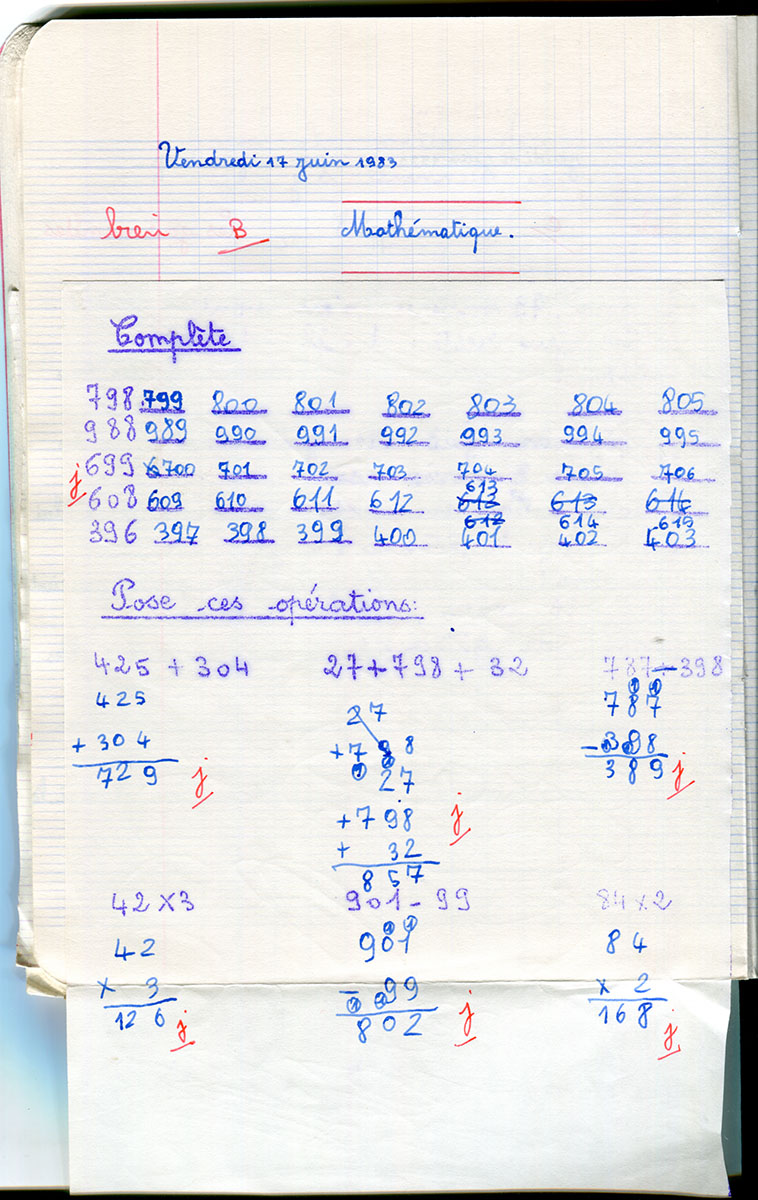 Vendredi 17 juin 1983
bien B Mathématique.
Complète
798 799 800 801 802 803 804 805
988 989 990 991 992 993 994 995
j 699 700 701 702 703 704 705 706
613
608 609 610 611 612 613 613 614
612 614 615
396 397 398 399 400 401 402 403
Pose ces opérations:
425 + 304 27 + 798 + 32 787 - 398
425
+ 304
729 j
27
+ 798
1 2
27
+ 798
+ 32
857 j
1 1
787
- 398
1 1
389 j
42 x 3 901 - 99 84 x 2
42
x 3
126 j
1 1
901
- 99
1 1
802 j
84
x 2
168 j